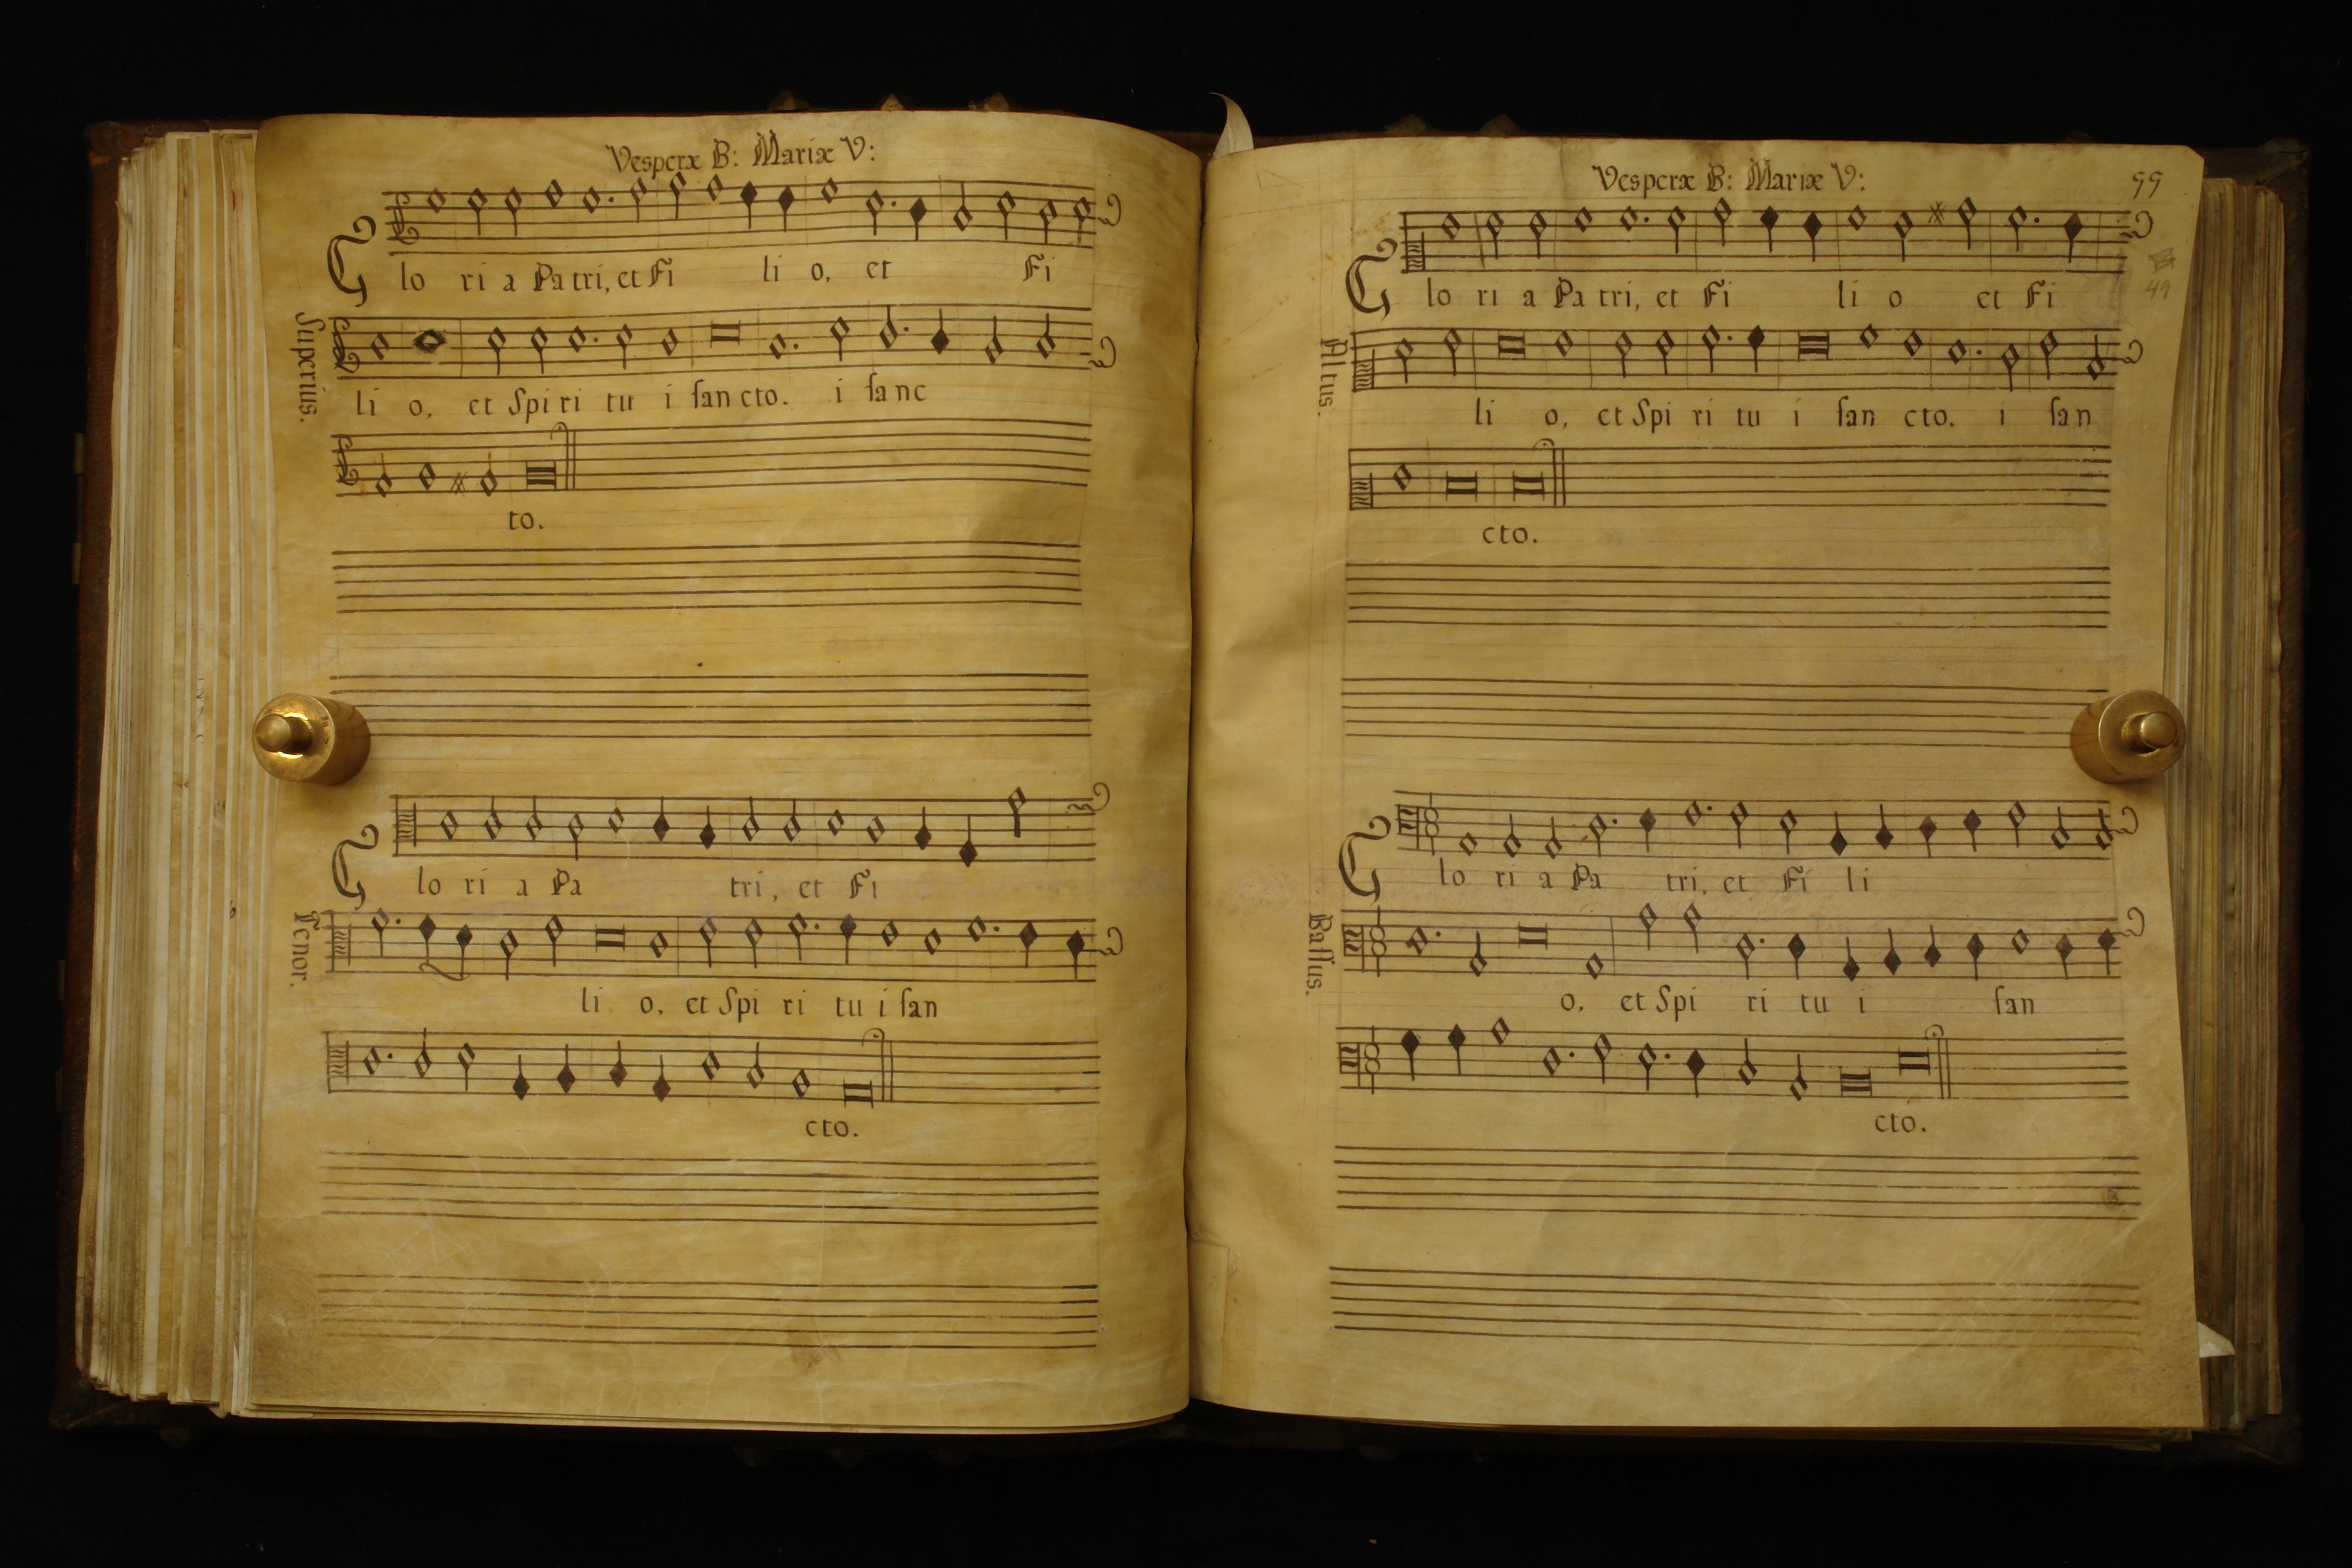 Vesperæ B: Mariæ V:
Glo ri a Pa tri, et Fi li o, et Fi
Superius.
li o, et Spi ri tu i ſan cto. i ſanc
to.
Glo ri a Pa tri, et Fi
Tenor.
li o, et Spi ri tu i ſan
cto.
Vesperæ B: Mariæ V:
99
49
Glo ri a Pa tri, et Fi li o et Fi
Altus.
li o, et Spi ri tu i ſan cto. i ſan
cto.
Glo ri a Pa tri, et Fi li
Baſſus.
o, et Spi ri tu i ſan
cto.